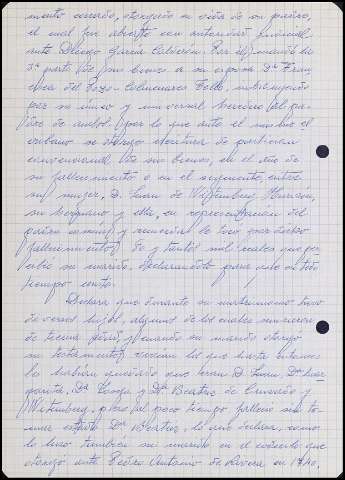 mento cerrado, otorgado en vista de su padre,
el cual fue abierto con autoridad judicial
ante Diego García Calderón. Por él mandó la
3ª parte de sus bienes a su esposa Dª Fran
cisca del Pozo-Colmenares Tello, instituyendo
por su único y universal heredero al pa-
dre de ambos, por lo que ante el mismo es
cribano se otorgó escritura de partición
convencional de sus bienes, en el año de
su fallecimiento o en el siguiente, entre
su mujer, D. Juan de
su hermano y ella, en representación del
padre común y renunciar le tocó por dicho
fallecimiento de y tantos mil reales que per
cibió su marido, declarándolo para que en todo
tiempo conste.
Declara que durante su matrimonio tuvo
diversos hijos, algunos de los cuales murieron
de tierna edad, y cuando su marido otorgó
su testamento vivían los que hasta entonces
le habían quedado que eran D. Juan, Dª Mar
garita, Dª y Dª Beatriz de Quesada y
pero al poco tiempo falleció sin to-
mar estado Dª Beatriz, lo que declara, como
lo hizo también su marido en el codicilo que
otorgó ante Pedro Antonio de Rivera en 1740,